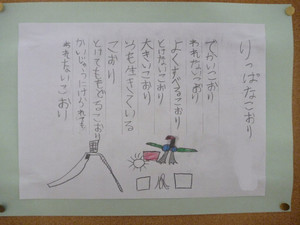 りっぱなこおり
でかいこおり
われないこおり
よくすべるこおり
とけないこおり
大きいこおり
いつも生きている
こおり
とけてももどるこおり
かいじゅうにけられても
われないこおり